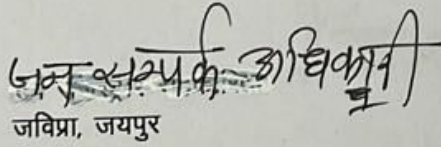 जन सम्पर्क अधिकारी
जविप्रा, जयपुर